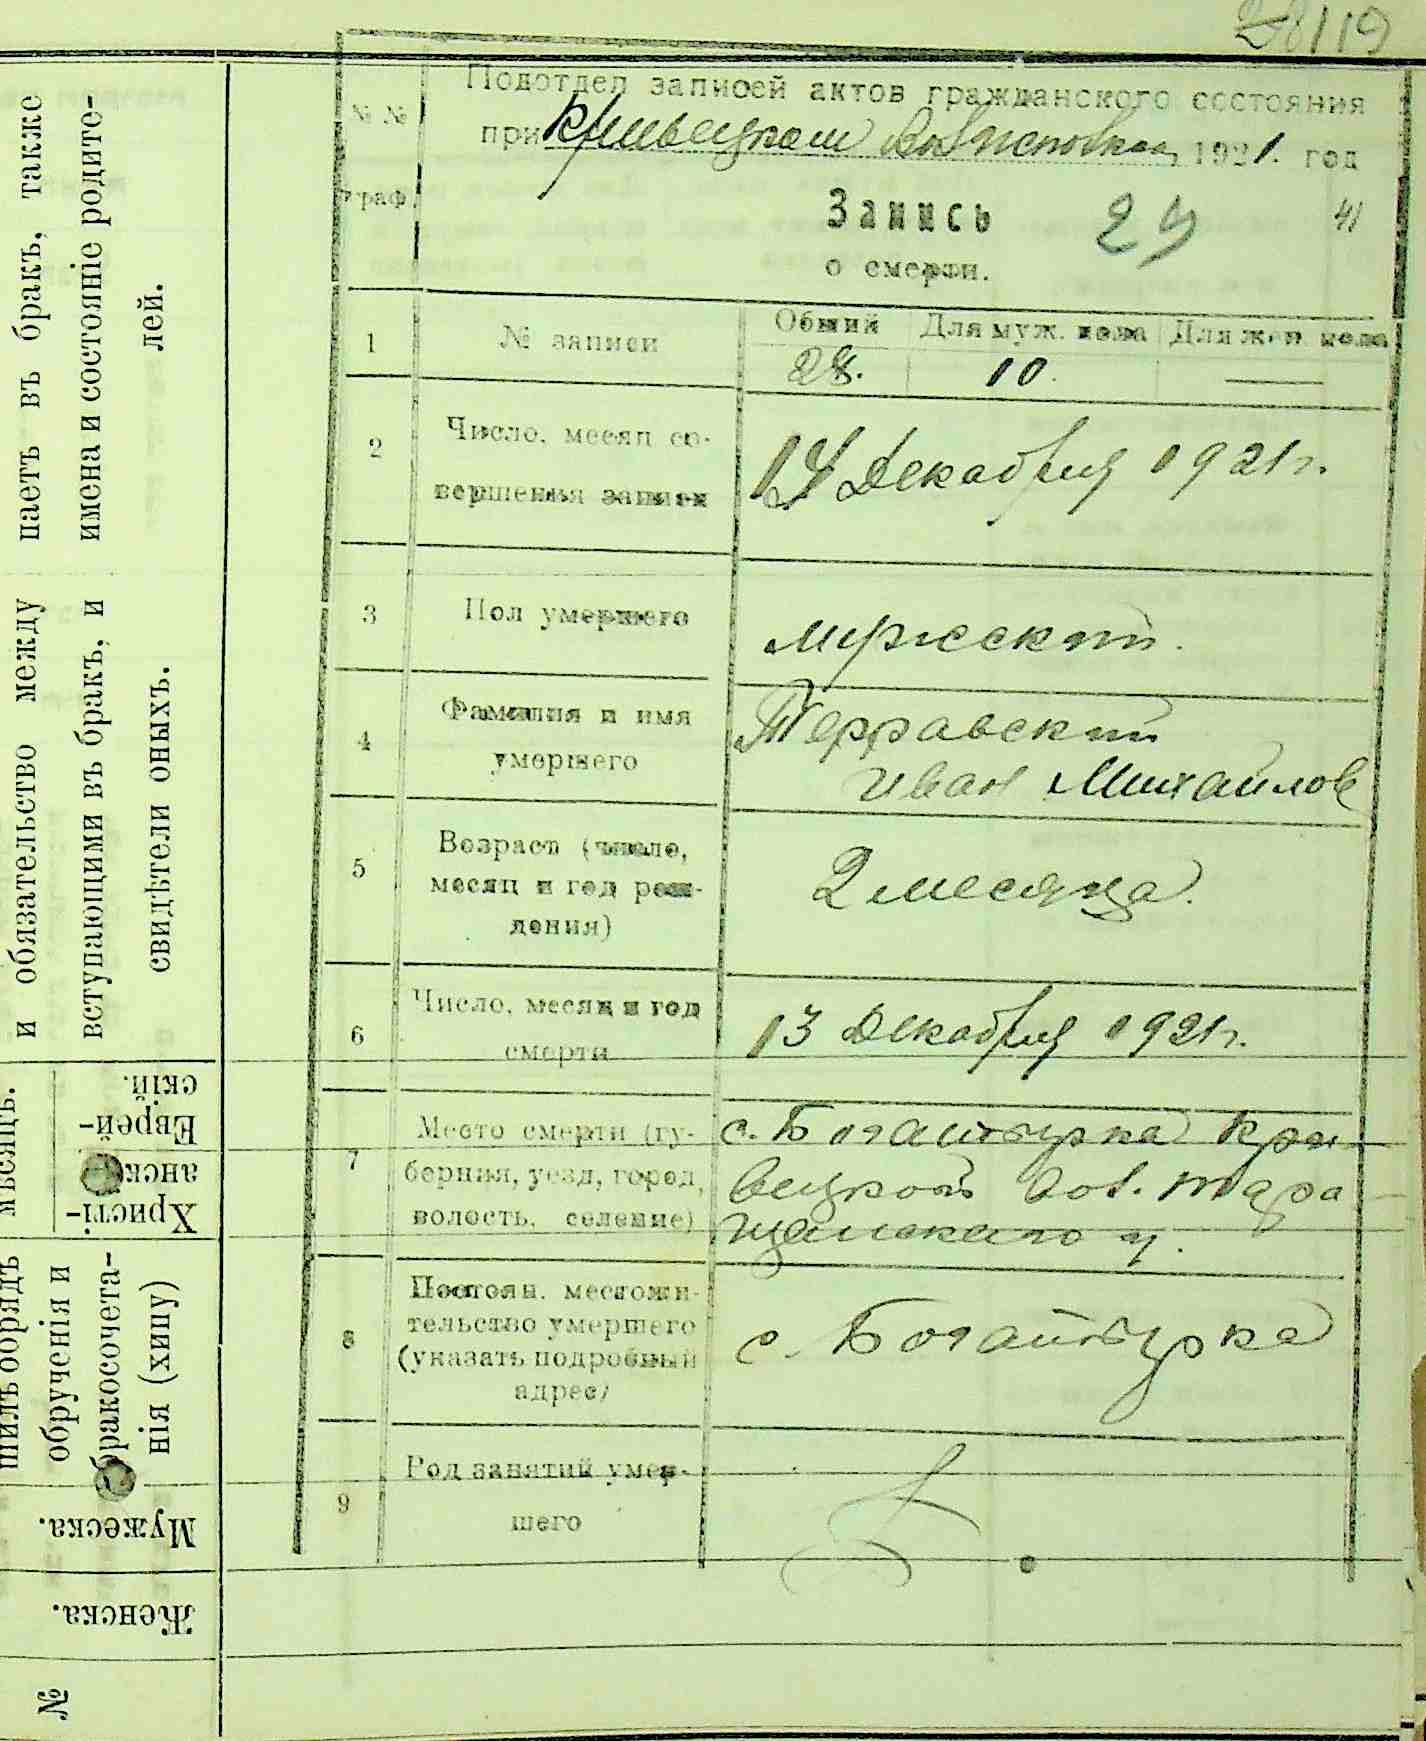 119
Подотдел записей актов гражданского состояния
при Кривецком Волисполкоме 1921. год
№ №
граф.
Запись 29 41
о смерти.
1 № записи Общий Для муж. пола Для жен. пола
28. 10. —
2 Число, месяц со-
вершения записи
14 Декабря 1921 г.
3 Пол умершего мужской.
4 Фамилия и имя
умершего
Терравский
Иван Михайлов
5 Возраст (число,
месяц и год рож-
дения)
2 месяца.
6 Число, месяц и год
смерти
13 Декабря 1921 г.
7 Место смерти (гу-
берния, уезд, город,
волость, селение)
с. Богатырка Кри-
вецкой Вол. Тара-
щанскаго у.
8 Постоян. местожи-
тельство умершего
(указать подробный
адрес)
с. Богатырка
9 Род занятий умер-
шего
и обязательство между
вступающими въ бракъ, и
свидѣтели оныхъ.
паетъ въ бракъ, также
имена и состоянiе родите-
лей.
мѣсяцъ.
Христі-
анскій
Еврей-
скій.
шилъ обрядъ
обрученія и
бракосочета-
нія (хипу)
Мужеска.
Женска.
№